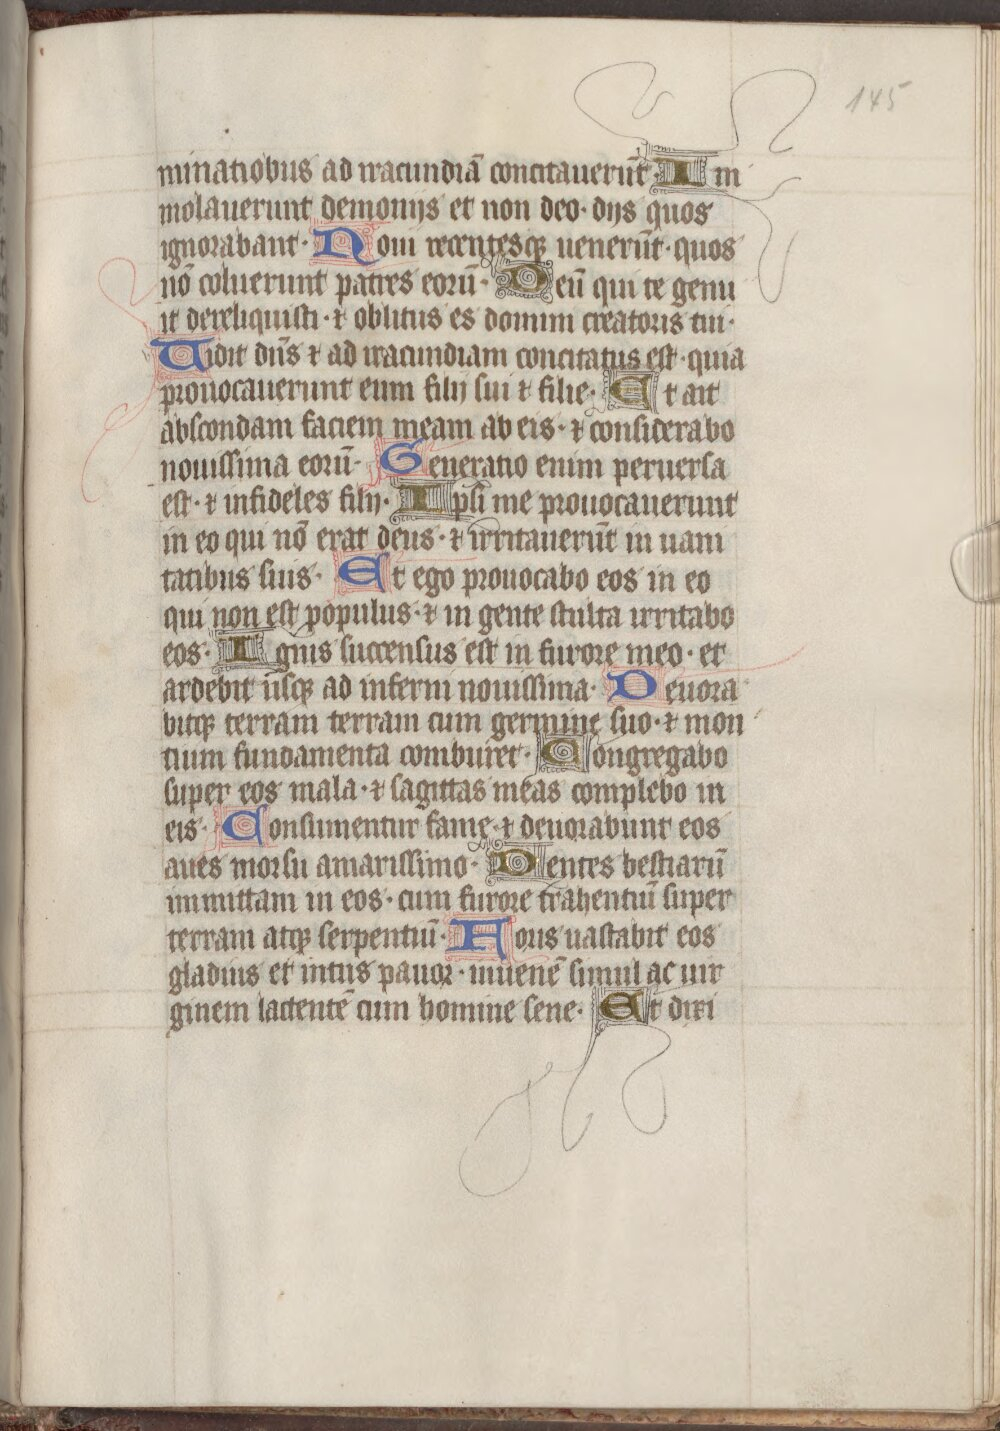 145
minatiobus ad iracundiā concitauerūt. Im
molauerunt demoniis et non deo. diis quos
ignorabant. Noui recentesqꝫ uenerūt. quos
nō coluerunt patres eorū. Deū qui te genu
it dereliquisti. ⁊ oblitus es domini creatoris tui.
Uidit dn̄s ⁊ ad iracundiam concitatus est. quia
prouocauerunt eum filij sui ⁊ filie. Et ait
abscondam faciem meam ab eis. ⁊ considerabo
nouissima eorū. Generatio enim peruersa
est. ⁊ infideles filij. Ipsi me prouocauerunt
in eo qui nō erat deus. ⁊ irritauerūt in uani
tatibus suis. Et ego prouocabo eos in eo
qui non est populus. ⁊ in gente stulta irritabo
eos. Ignis succensus est in furore meo. et
ardebit usqꝫ ad inferni nouissima. Deuora
bitqꝫ terram terram cum germine suo. ⁊ mon
tium fundamenta comburet. Congregabo
super eos mala. ⁊ sagittas meas complebo in
eis. Consumentur fame. ⁊ deuorabunt eos
aues morsu amarissimo. Dentes bestiarū
immittam in eos. cum furore trahentiū super
terram atqꝫ serpentiū. Foris uastabit eos
gladius et intus pauor. iuuenē simul ac uir
ginem lactentē cum homine sene. Et dixi